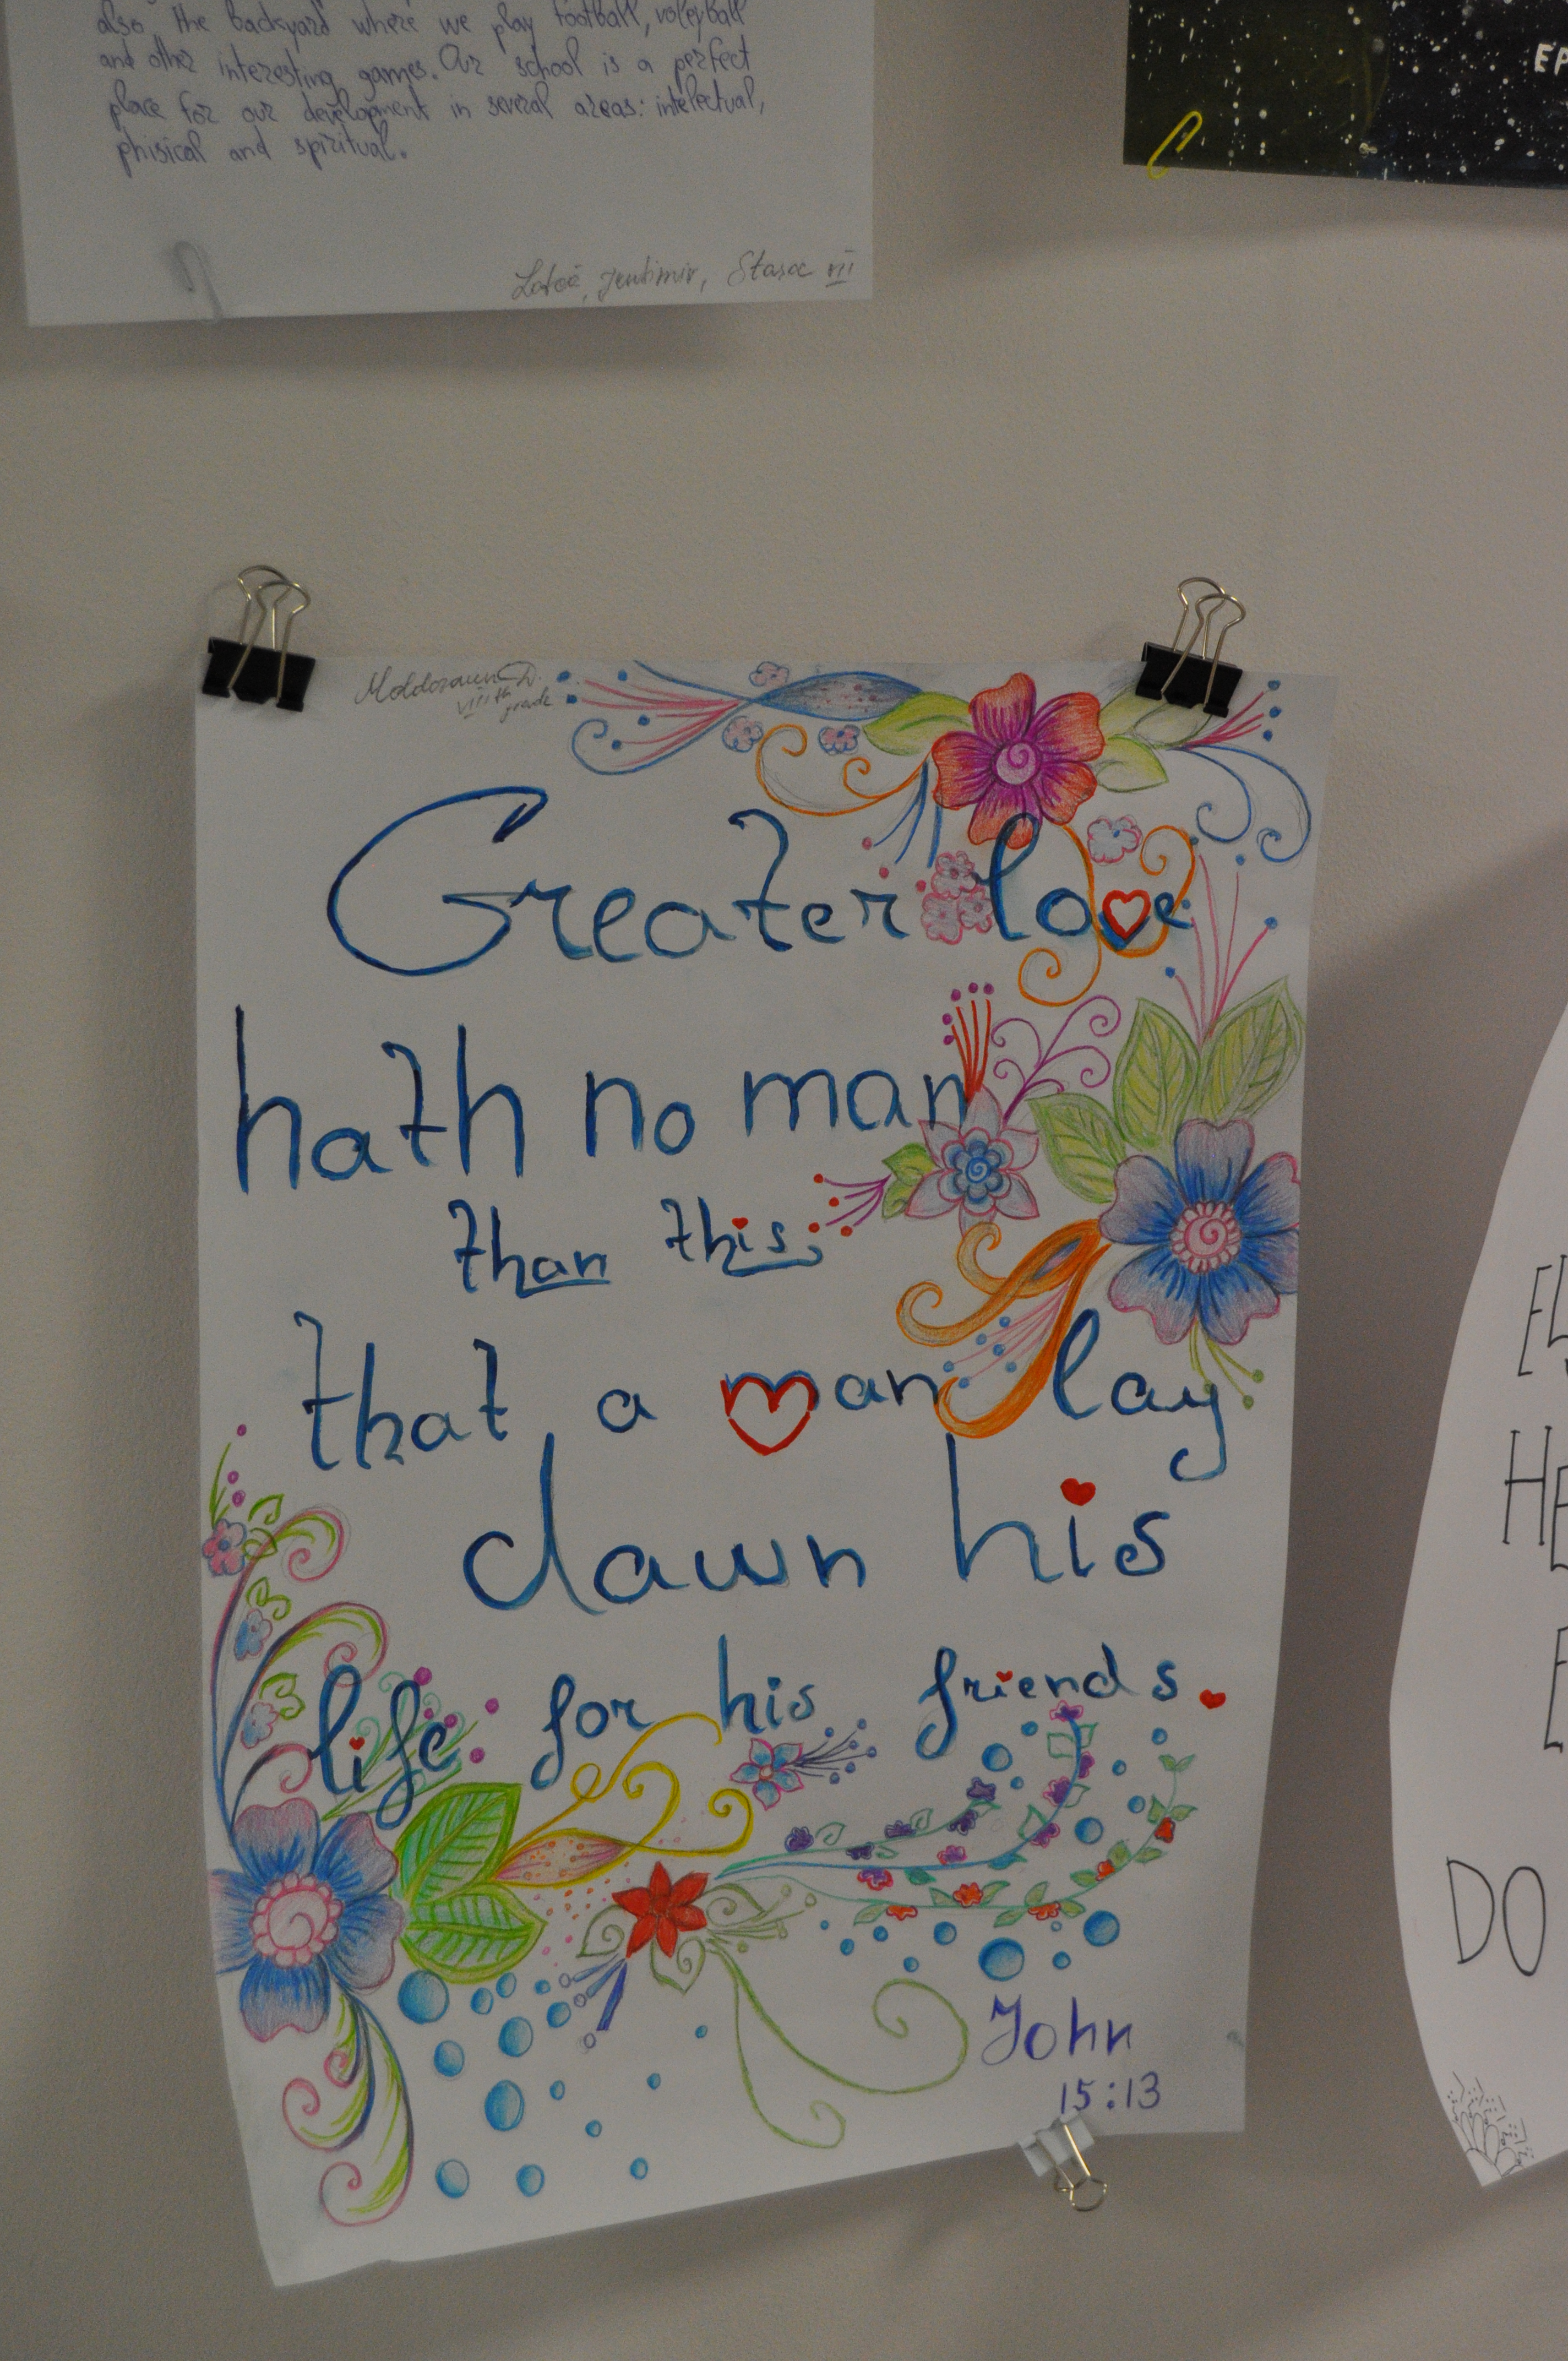 also the backyard where we play football, voleyball
and other interesting games. Our school is a perfect
place for our development in several areas: intelectual,
phisical and spiritual.
VII
EP
VIIIth
grade
Greater love
hath no man
than this;
that a man lay
dawn his
life for his friends.
John
15:13
HE
DO